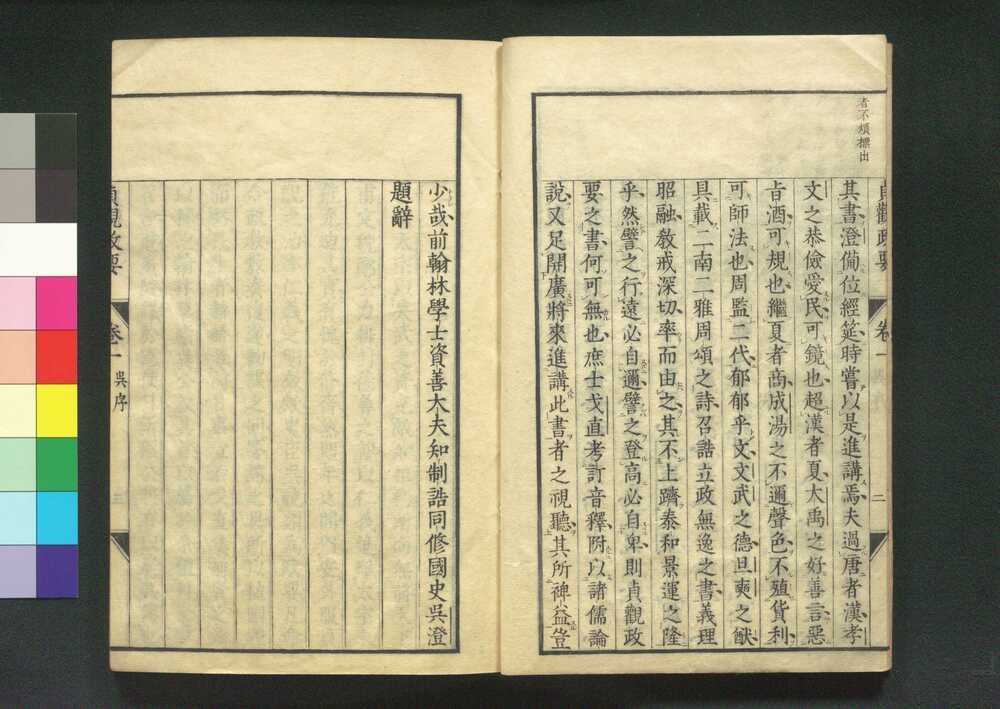 者不煩標出
貞觀政要
卷一
二
其書澄備位經筵時嘗以是進講焉夫過唐者漢孝
文之恭儉愛民可鏡也超漢者夏大禹之好善言惡
旨酒可規也繼夏者商成湯之不邇聲色不殖貨利
可師法也周監二代郁郁乎文文武之德旦奭之猷
具載二南二雅周頌之詩召誥立政無逸之書義理
昭融敎戒深切率而由之其不上躋泰和景運之隆
乎然譬之行遠必自邇譬之登高必自卑則貞觀政
要之書何可無也庶士戈直考訂音釋附以諸儒論
說又足開廣將來進講此書者之視聽其所裨益豈
少哉前翰林學士資善大夫知制誥同修國史吳澄
題辭
貞觀政要
卷一
吳序
三